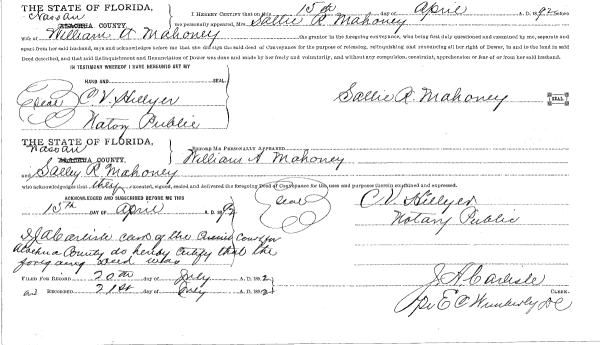 THE STATE OF FLORIDA,
Nassau
ALACHUA COUNTY.
I HEREBY CERTIFY that on this 15th day of April A. D. 92 before
me personally appeared, Mrs Sallie R. Mahoney
Wife of William A Mahoney the grantor in the foregoing conveyance, who being first duly questioned and examined by me, separate and
apart from her said husband, says and acknowledges before me that she did sign the said deed of conveyance for the purpose of releasing, relinquishing and renouncing all her right of Dower, in and to the land in said
Deed described, and that said Relinquishment and Renunciation of Dower was done and made by her freely and voluntarily, and without any compulsion, constraint, apprehension or fear of or from her said husband.
IN TESTIMONY WHEREOF I HAVE HEREUNTO SET MY
HAND AND SEAL
Seal C. V. Hillyer
Notary Public
Sallie R. Mahoney SEAL
THE STATE OF FLORIDA,
Nassau
ALACHUA COUNTY.
BEFORE ME PERSONALLY APPEARED
William A Mahoney
and Salley R. Mahoney
who acknowledges that they executed, signed, sealed and delivered the foregoing Deed of Conveyance for the uses and purposes therein explained and expressed.
ACKNOWLEDGED AND SUBSCRIBED BEFORE ME THIS
15th DAY OF April A. D. 1892
Seal
C. V. Hillyer
Notary Public
I J A Carlisle of the Circuit Court for
Alachua County do hereby certify that the
foregoing deed was
FILED FOR RECORD 20th day of July A.D. 1892
and RECORDED 21st day of July A.D. 1892
J. A. Carlisle CLERK.
Pr E C Wimberly D C